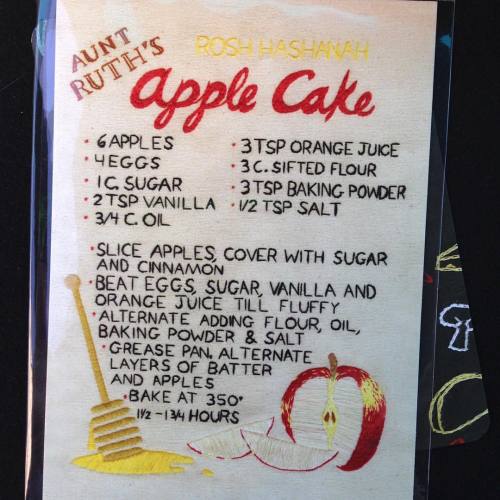 AUNT
RUTH'S
ROSH HASHANAH
Apple Cake
• 6 APPLES
• 4 EGGS
• 1 C. SUGAR
• 2 TSP VANILLA
• 3/4 C. OIL
• 3 TSP ORANGE JUICE
• 3 C. SIFTED FLOUR
• 3 TSP BAKING POWDER
• 1/2 TSP SALT
• SLICE APPLES, COVER WITH SUGAR
AND CINNAMON
• BEAT EGGS, SUGAR, VANILLA AND
ORANGE JUICE TILL FLUFFY
• ALTERNATE ADDING FLOUR, OIL,
BAKING POWDER & SALT
• GREASE PAN, ALTERNATE
LAYERS OF BATTER
AND APPLES
• BAKE AT 350°
1 1/2 - 1 3/4 HOURS